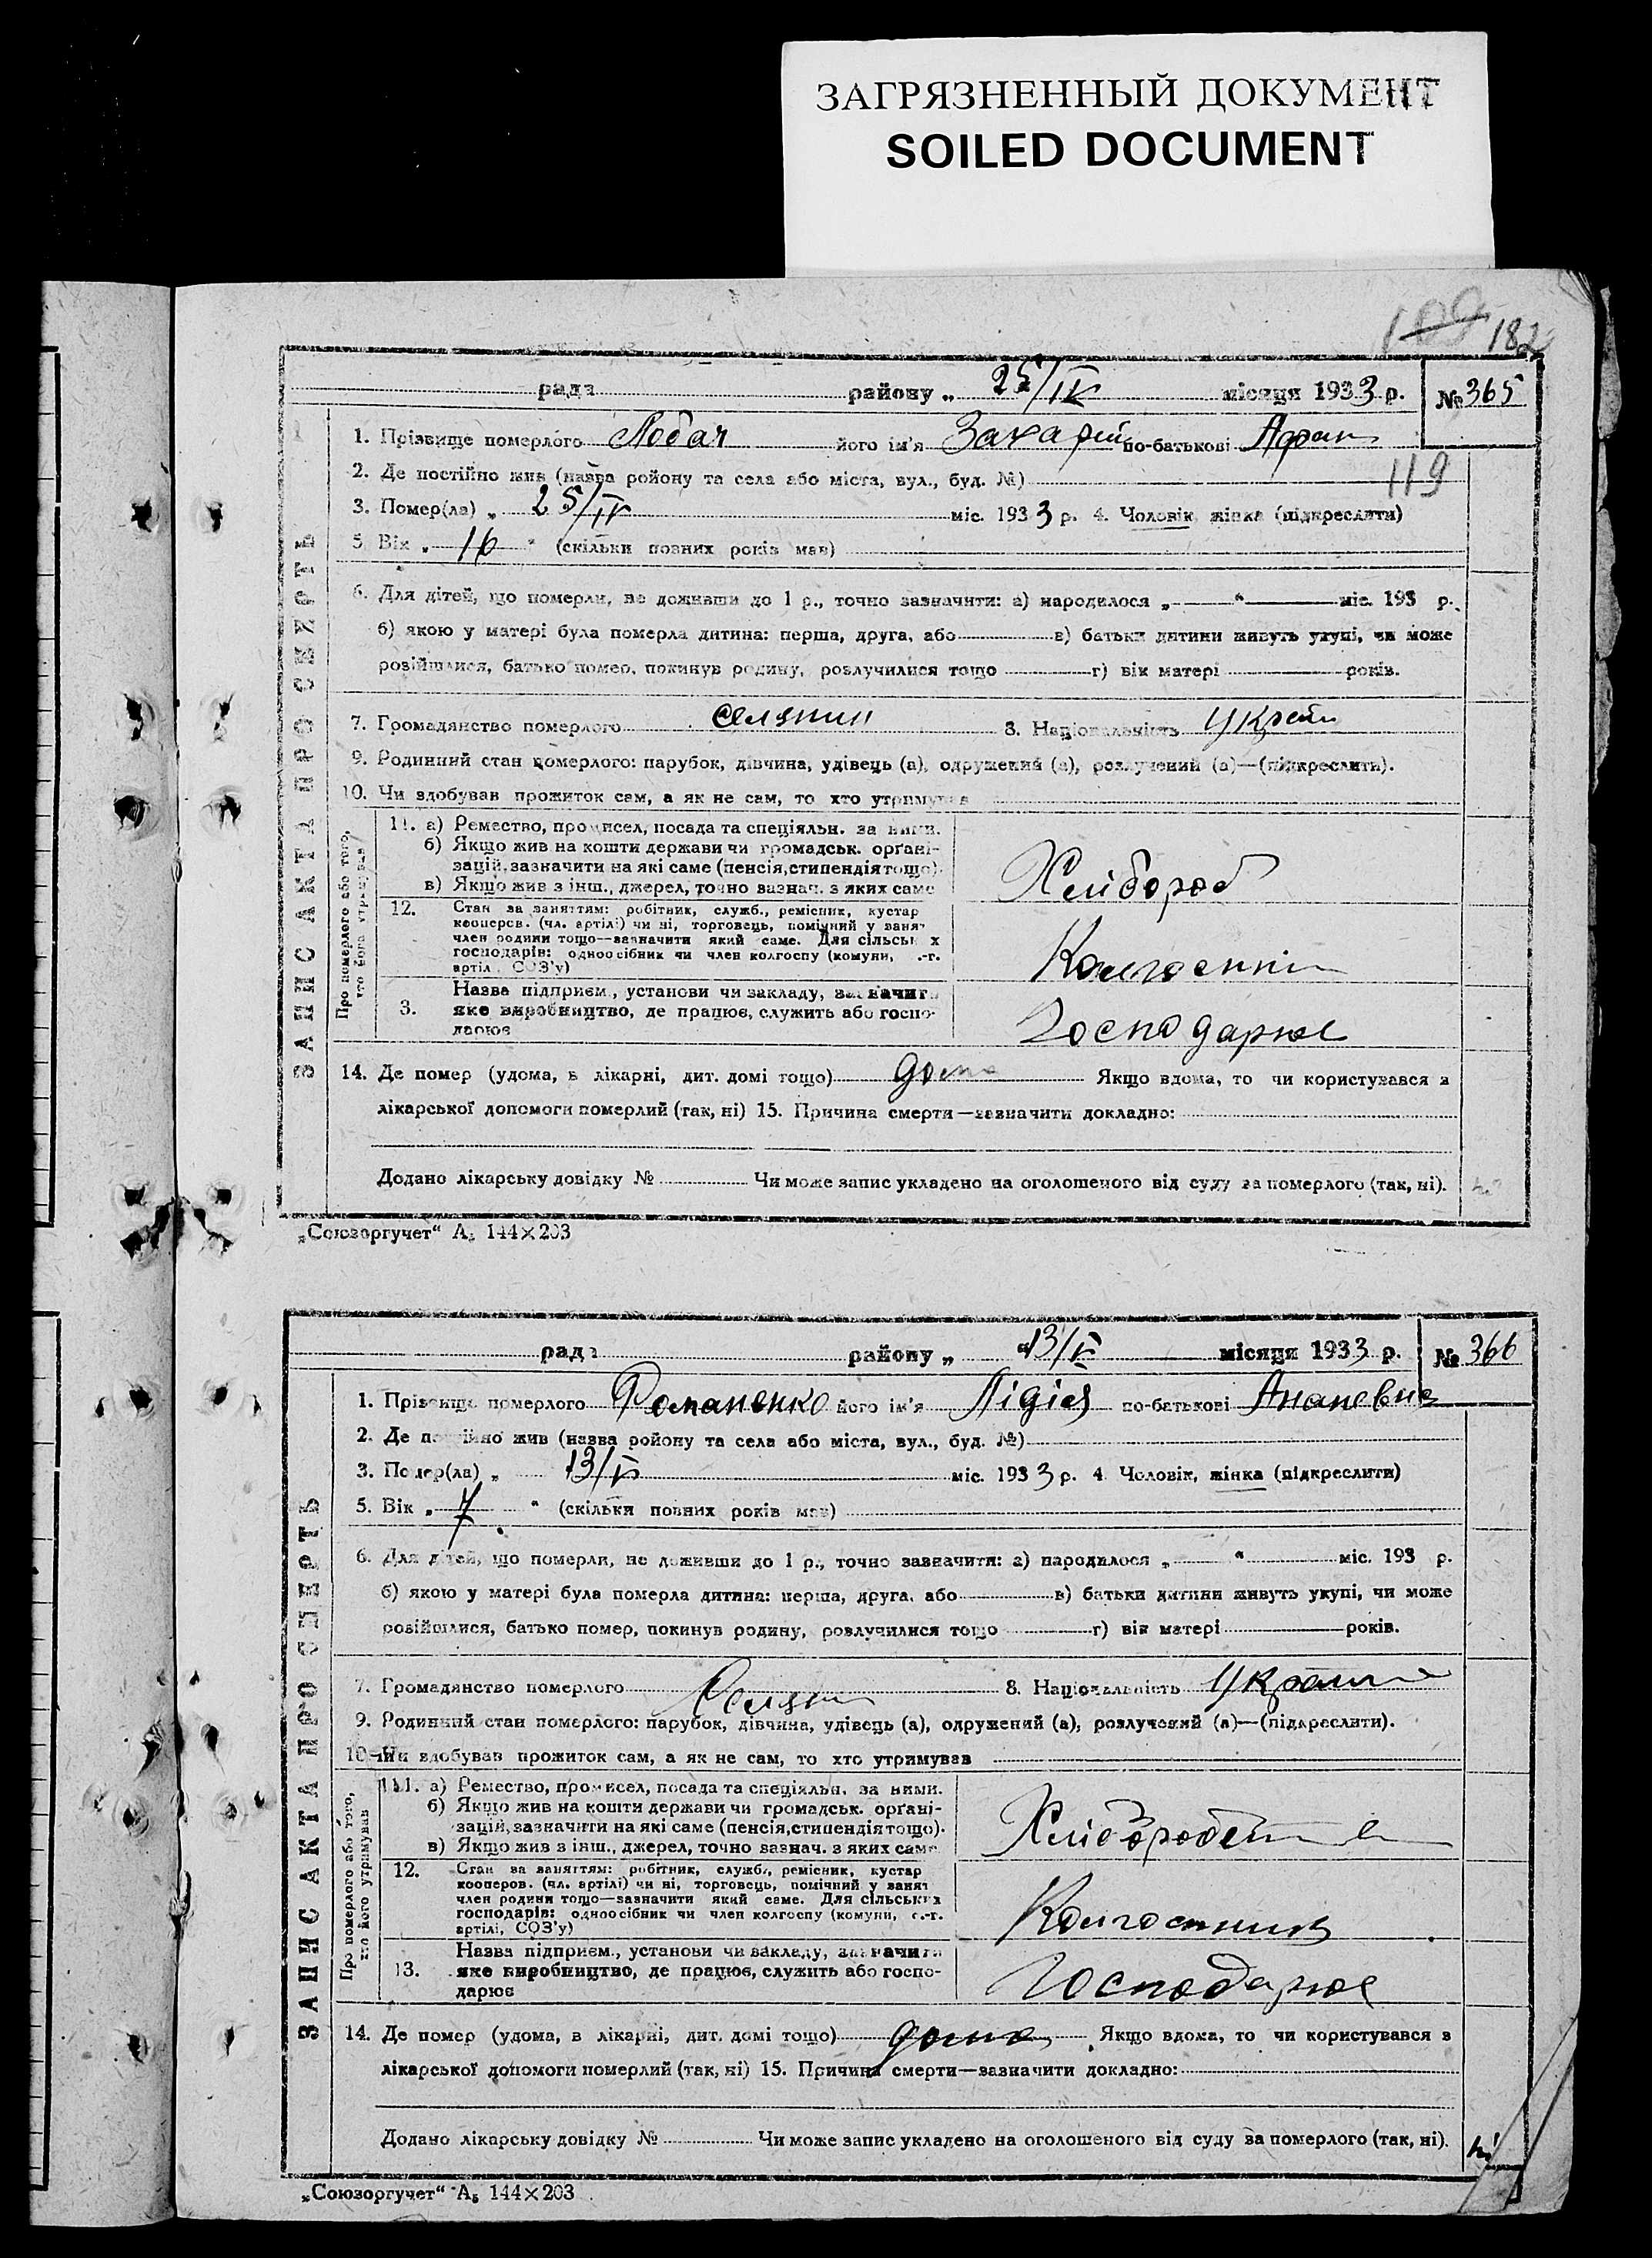 ЗАГРЯЗНЕННЫЙ ДОКУМЕНТ
SOILED DOCUMENT
109 182
рада району „ 25/IV місяця 1933 р. № 365
1. Прізвище померлого Лобач його ім'я Захарій по-батькові Афан
2. Де постійно жив (назва ройону та села або міста, вул., буд. №) 119
3. Помер(ла) „ 25/IV міс. 1933 р. 4. Чоловік, жінка (підкреслити)
5. Вік „ 16 “ (скільки повних років мав)
6. Для дітей, що померли, не доживши до 1 р., точно зазначити: а) народилося „ “ міс. 193 р.
б) якою у матері була померла дитина: перша, друга, або в) батьки дитини живуть укупі, чи може
розійшлися, батько помер, покинув родину, розлучилися тощо г) вік матері років.
7. Громадянство померлого селянин 8. Національність Украї
9. Родинний стан померлого: парубок, дівчина, удівець (а), одружений (а), розлучений (а)—(підкреслити).
10. Чи здобував прожиток сам, а як не сам, то хто утримував
ЗАПИС АКТА ПРО СМЕРТЬ
Про померлого або того,
хто його утримував
11. а) Ремество, промисел, посада та спеціяльн. за ними.
б) Якщо жив на кошти держави чи громадськ. організацій, зазначити на які саме (пенсія, стипендія тощо).
в) Якщо жив з інш., джерел, точно зазнач. з яких саме
Хлібороб
12. Стан за заняттям: робітник, служб., ремісник, кустар
кооперов. (чл. артілі) чи ні, торговець, помічний у занят
член родини тощо—зазначити який саме. Для сільських
господарів: одноосібник чи член колгоспу (комуни, с.-г.
артілі, СОЗ'у)
Колгоспни
3. Назва підприєм., установи чи закладу, зазначити
яке виробництво, де працює, служить або госпо-
дарює
Господарює
14. Де помер (удома, в лікарні, дит. домі тощо) дома Якщо вдома, то чи користувався з
лікарської допомоги померлий (так, ні) 15. Причина смерти—зазначити докладно:
Додано лікарську довідку № Чи може запис укладено на оголошеного від суду за померлого (так, ні).
„Союзоргучет“ А₅ 144×203
рада району „ 13/V місяця 1933 р. № 366
1. Прізвище померлого Романенко його ім'я Лідія по-батькові
2. Де постійно жив (назва ройону та села або міста, вул., буд. №)
3. Помер(ла) „ 13/V міс. 1933 р. 4. Чоловік, жінка (підкреслити)
5. Вік „ 7 “ (скільки повних років мав)
6. Для дітей, що померли, не доживши до 1 р., точно зазначити: а) народилося „ “ міс. 193 р.
б) якою у матері була померла дитина: перша, друга, або в) батьки дитини живуть укупі, чи може
розійшлися, батько помер, покинув родину, розлучилися тощо г) вік матері років.
7. Громадянство померлого Селян 8. Національність
9. Родинний стан померлого: парубок, дівчина, удівець (а), одружений (а), розлучений (а)—(підкреслити).
10. Чи здобував прожиток сам, а як не сам, то хто утримував
ЗАПИС АКТА ПРО СМЕРТЬ
Про померлого або того,
хто його утримував
11. а) Ремество, промисел, посада та спеціяльн. за ними.
б) Якщо жив на кошти держави чи громадськ. органі-
зацій, зазначити на які саме (пенсія, стипендія тощо).
в) Якщо жив з інш., джерел, точно зазнач. з яких саме
12. Стан за заняттям: робітник, служб., ремісник, кустар
кооперов. (чл. артілі) чи ні, торговець, помічний у занят
член родини тощо—зазначити який саме. Для сільських
господарів: одноосібник чи член колгоспу (комуни, с.-г.
артілі, СОЗ'у)
Колгоспник
13. Назва підприєм., установи чи закладу, зазначити
яке виробництво, де працює, служить або госпо-
дарює
Господарює
14. Де помер (удома, в лікарні, дит. домі тощо) дома Якщо вдома, то чи користувався з
лікарської допомоги померлий (так, ні) 15. Причина смерти—зазначити докладно:
Додано лікарську довідку № Чи може запис укладено на оголошеного від суду за померлого (так, ні). ні
„Союзоргучет“ А₅ 144×203